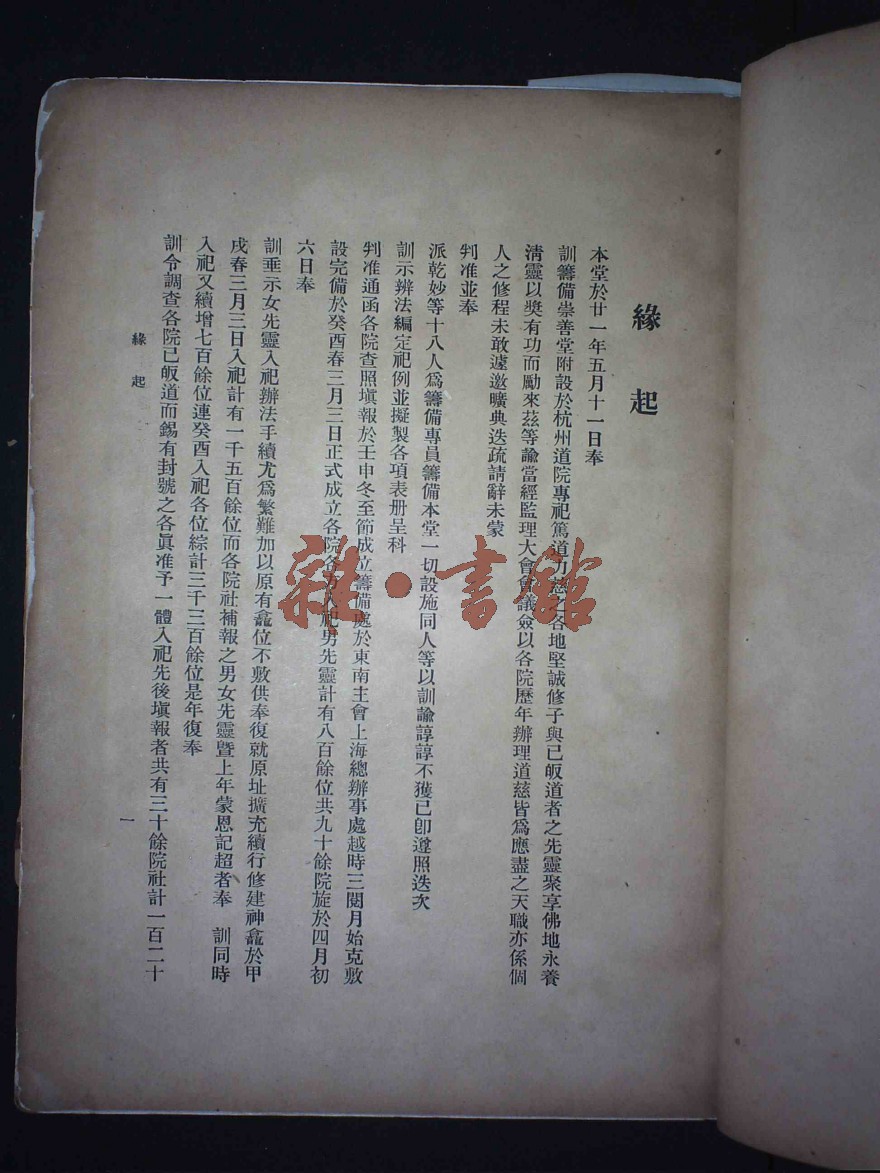 緣起
本堂於廿一年五月十一日奉
訓籌備崇善堂附設於杭州道院專祀篤道力慈之各地堅誠修子與已皈道者之先靈聚享佛地永養
清靈以奬有功而勵來茲等諭當經監理大會會議僉以各院歷年辦理道慈皆爲應盡之天職亦係個
人之修程未敢遽邀曠典迭疏請辭未蒙
判准並奉
派乾妙等十八人爲籌備專員籌備本堂一切設施同人等以訓諭諄諄不獲已卽遵照迭次
訓示辦法編定祀例並擬製各項表册呈科
判准通函各院查照塡報於壬申冬至節成立籌備處於東南主會上海總辦事處越時三閱月始克敷
設完備於癸酉春三月三日正式成立各院各方入祀男先靈計有八百餘位共九十餘院旋於四月初
六日奉
訓垂示女先靈入祀辦法手續尤爲繁難加以原有龕位不敷供奉復就原址擴充續行修建神龕於甲
戌春三月三日入祀計有一千五百餘位而各院社補報之男女先靈曁上年蒙恩記超者奉　訓同時
入祀又續增七百餘位連癸酉入祀各位綜計三千三百餘位是年復奉
訓令調查各院已皈道而錫有封號之各眞准予一體入祀先後塡報者共有三十餘院社計一百二十
緣起
一
雜·書館